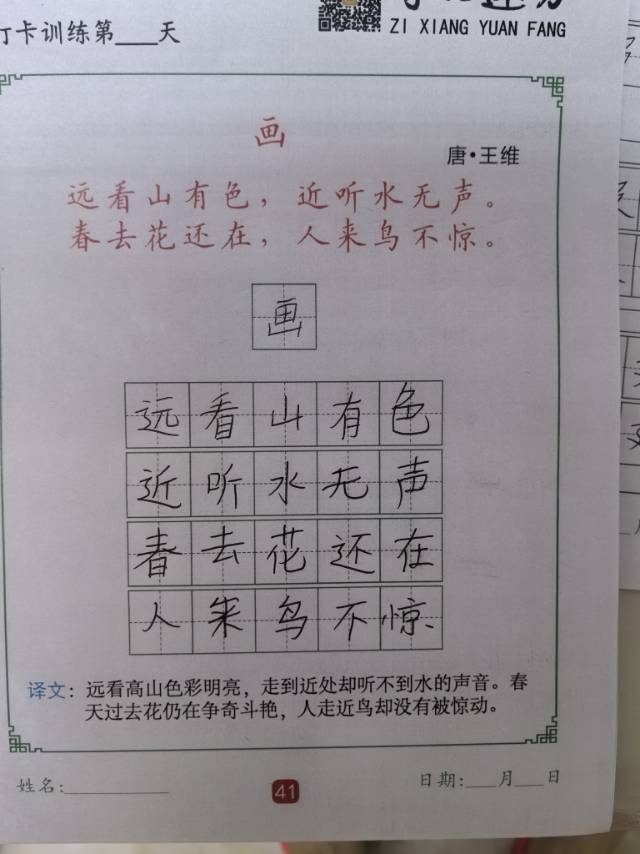 打卡训练第___天
ZI XIANG YUAN FANG
画
唐·王维
远看山有色，近听水无声。
春去花还在，人来鸟不惊。
画
远看山有色
近听水无声
春去花还在
人来鸟不惊
译文：远看高山色彩明亮，走到近处却听不到水的声音。春
天过去花仍在争奇斗艳，人走近鸟却没有被惊动。
姓名:___________
41
日期:___月___日